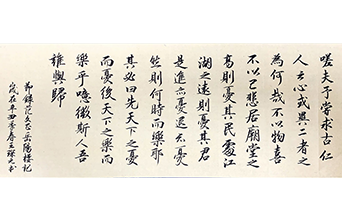 嗟夫予嘗求古仁
人之心或異二者之
為何哉不以物喜
不以己悲居廟堂之
高則憂其民處江
湖之遠則憂其君
是進亦憂退亦憂
然則何時而樂耶
其必曰先天下之憂
而憂後天下之樂而
樂乎噫微斯人吾
誰與歸
節錄范文岳陽樓記
歲在辛酉季春王